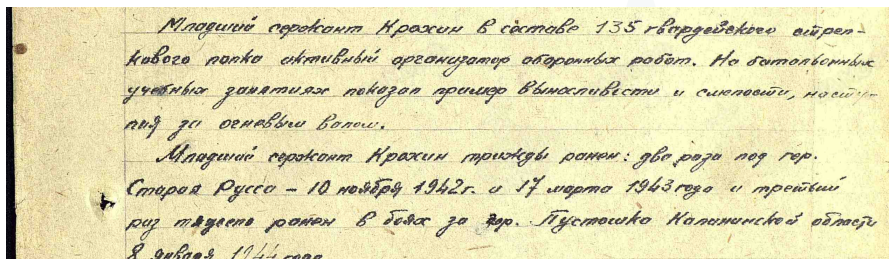 Младший сержант Крохин в составе 135 гвардейского стрел-
кового полка активный организатор оборонных работ. На батальонных
учебных занятиях показал пример выносливости и смелости, насту-
пая за огневым валом.
Младший сержант Крохин трижды ранен: два раза под гор.
Старая Русса – 10 ноября 1942г. и 17 марта 1943 года и третий
раз тяжело ранен в боях за гор. Пустошка Калининской области
8 января 1944 года